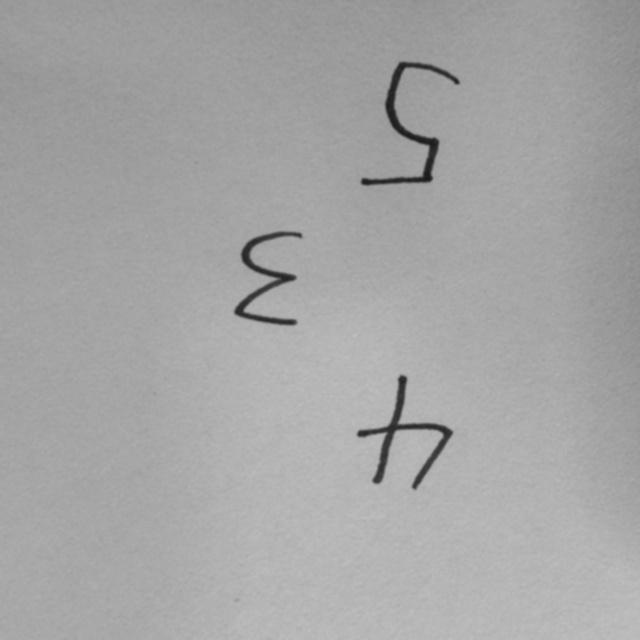 4
3
5